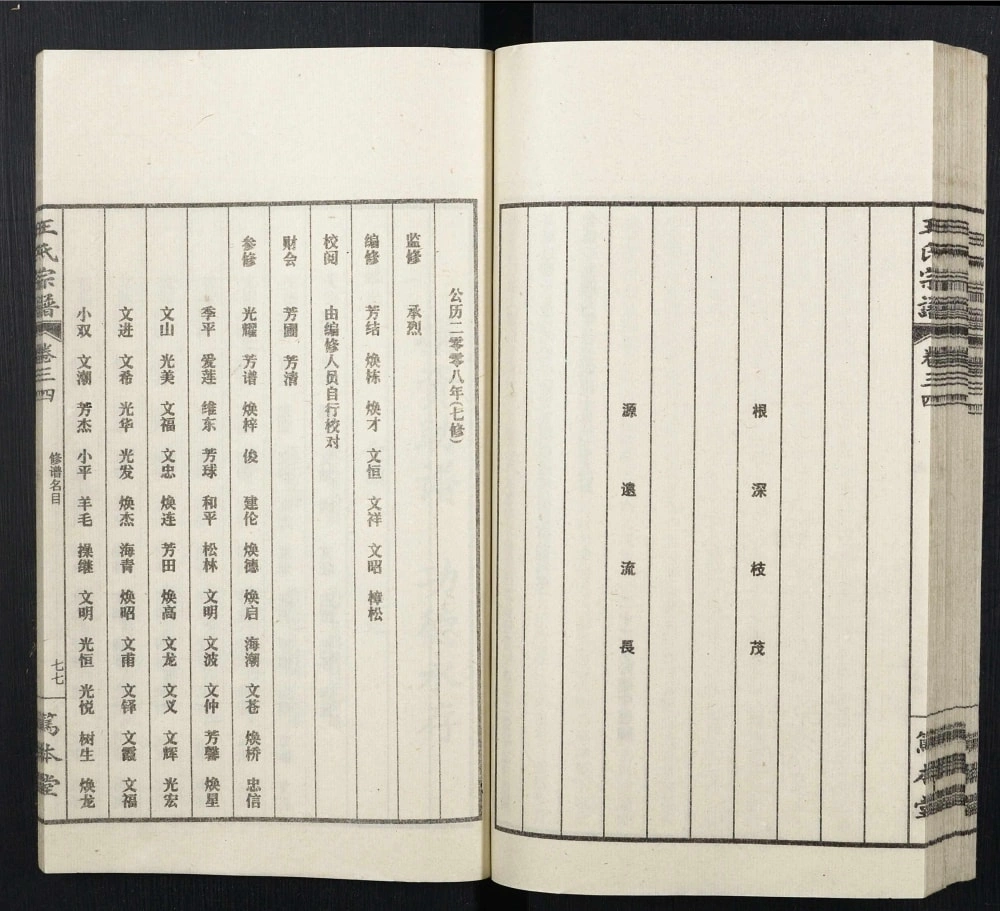 王氏宗譜
卷三四
篤本堂
根深枝茂
源遠流長
公历二零零八年(七修)
监修 承烈
编修 芳结 焕栋 焕才 文恒 文祥 文昭 樟松
校阅 由编修人员自行校对
财会 芳圃 芳清
参修 光耀 芳谱 焕梓 俊 建伦 焕德 焕启 海潮 文苍 焕桥 忠信
季平 爱莲 维东 芳球 和平 松林 文明 文波 文仲 芳馨 焕星
文山 光美 文福 文忠 焕连 芳田 焕高 文龙 文义 文辉 光宏
文进 文希 光华 光发 焕杰 海青 焕昭 文甫 文铎 文霞 文福
小双 文潮 芳杰 小平 羊毛 操继 文明 光恒 光悦 树生 焕龙
王氏宗譜
卷三四
修谱名目
七七
篤本堂